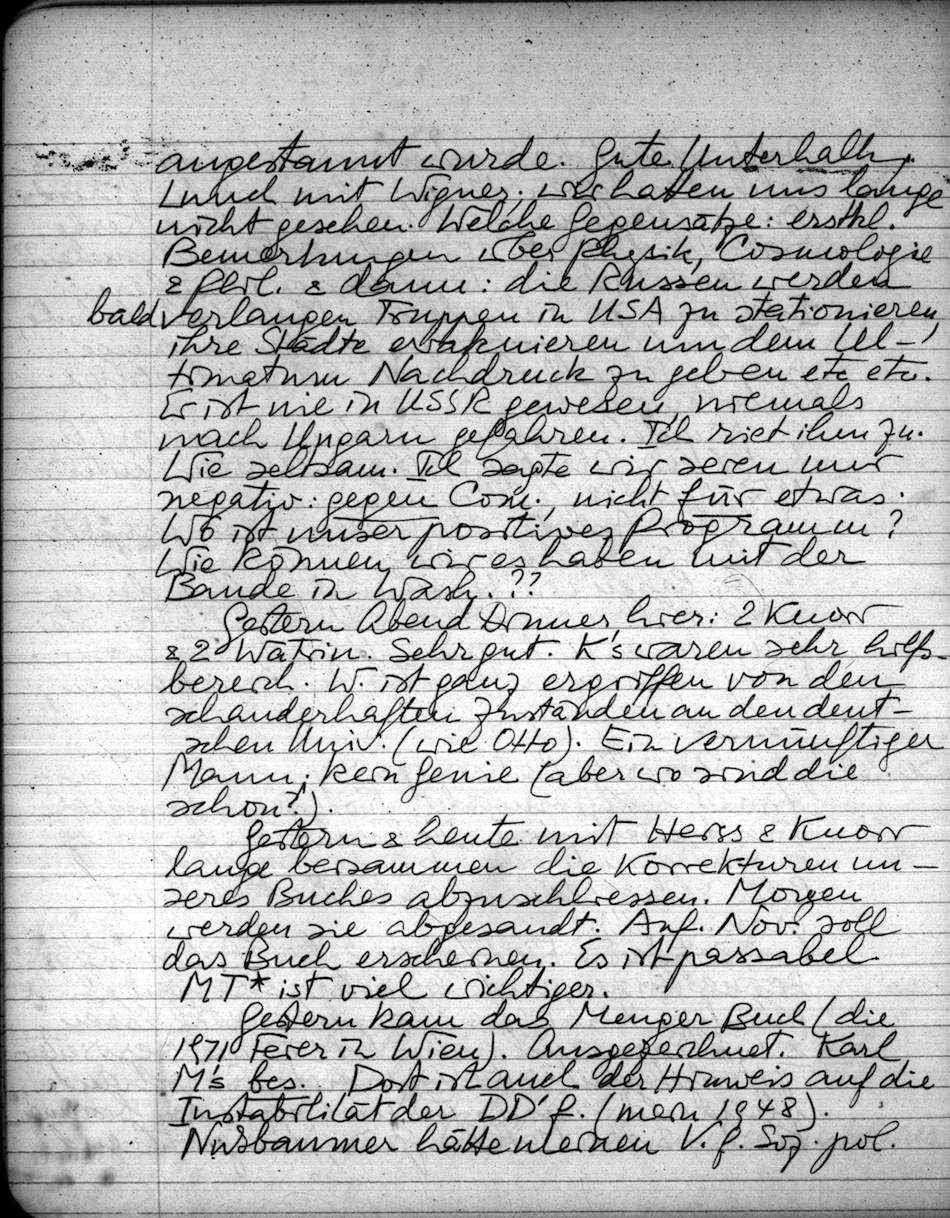 angestaunt wurde. Gute Unterhaltg.
Lunch mit Wigner. wir hatten uns lange
nicht gesehen. Welche Gegensätze: erstkl.
Bemerkungen über Physik, Cosmologie
& Phil. & dann: die Russen werden
bald verlangen Truppen in USA zu stationieren,
ihre Städte evakuieren um dem Ul-
timatum Nachdruck zu geben etc etc.
Er ist nie in USSR gewesen, niemals
nach Ungarn gefahren. Ich riet ihm zu.
Wie seltsam. Ich sagte wir seien nur
negativ: gegen Com., nicht für etwas.
Wo ist unser positives Programm?
Wie können wir es haben mit der
Bande in Wash.??
Gestern Abend Dinner hier: 2 Knorr
& 2 Watrin. Sehr gut. K's waren sehr hilfs-
bereich. W. ist ganz ergriffen von den
schauderhaften Zuständen an den deut-
schen Univ. (wie Otto). Ein vernünftiger
Mann; kein Genie (aber wo sind die
schon?).
Gestern & heute mit Heiss & Knorr
lange beisammen die Korrekturen un-
seres Buches abzuschliessen. Morgen
werden sie abgesandt. Anf. Nov. soll
das Buch erscheinen. Es ist passabel
MT* ist viel wichtiger.
Gestern kam das Menger Buch (die
1971 Feier in Wien). Ausgezeichnet. Karl
M's bes. Dort ist auch der Hinweis auf die
Instabilität der DD'f. (mein 1948).
Nußbaumer hätte meinen V. f. Soz. pol.